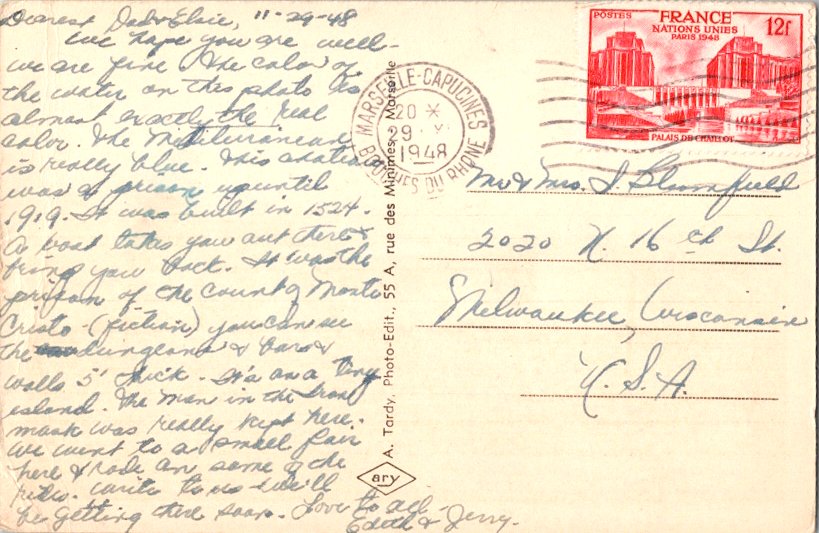 Dearest Dad & Elsie, 11-29-48
We hope you are well-
we are fine. The color of
the water on this photo is
almost exactly the real
color. The Mediterranean
is really blue. This
was a prison up until
1919. It was built in 1524.
A boat takes you out there &
brings you back. It was the
prison of the Count of Monte
Cristo - (fiction) you can see
the dungeons & bars &
walls 5' thick. It's on a tiny
island. The man in the Iron
mask was really kept here.
We went to a small fair
here & rode on some of the
rides. Write to us - we'll
be getting there soon. Love to all -
Edith & Jerry.
A. Tardy, Photo-Edit., 55 A, rue des Minimes, Marseille
ary
MARSEILLE-CAPUCINES
20 *
29 XI
1948
BOUCHES DU RHONE
POSTES
FRANCE
12f
NATIONS UNIES
PARIS 1948
PALAIS DE CHAILLOT
Mr & Mrs. I. Bloomfield
2020 N. 16 th St.
Milwaukee, Wisconsin
U.S.A.